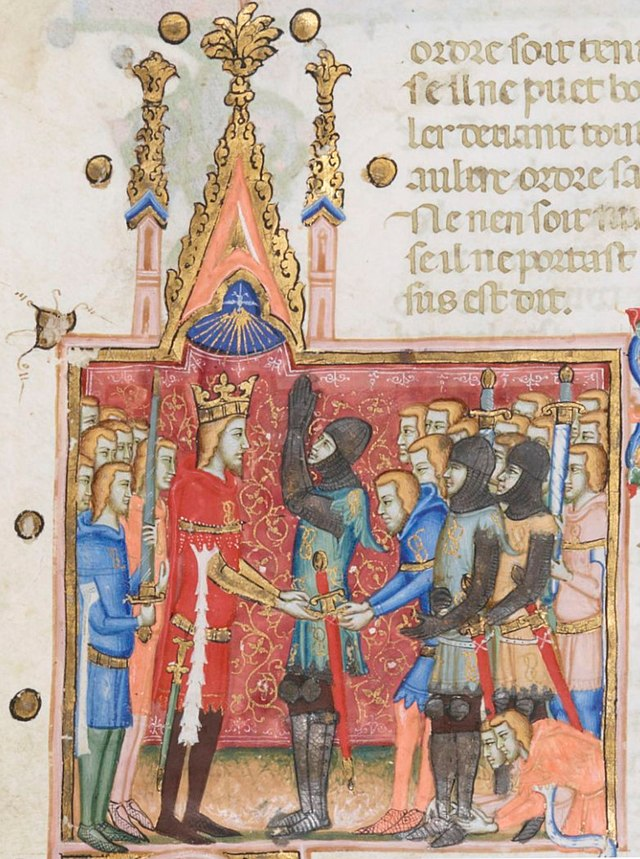 ordre soit ten
se il ne puet bo
ler deuant tou
ordre sa
Ne nen soit
se il ne portast
sus est dit.